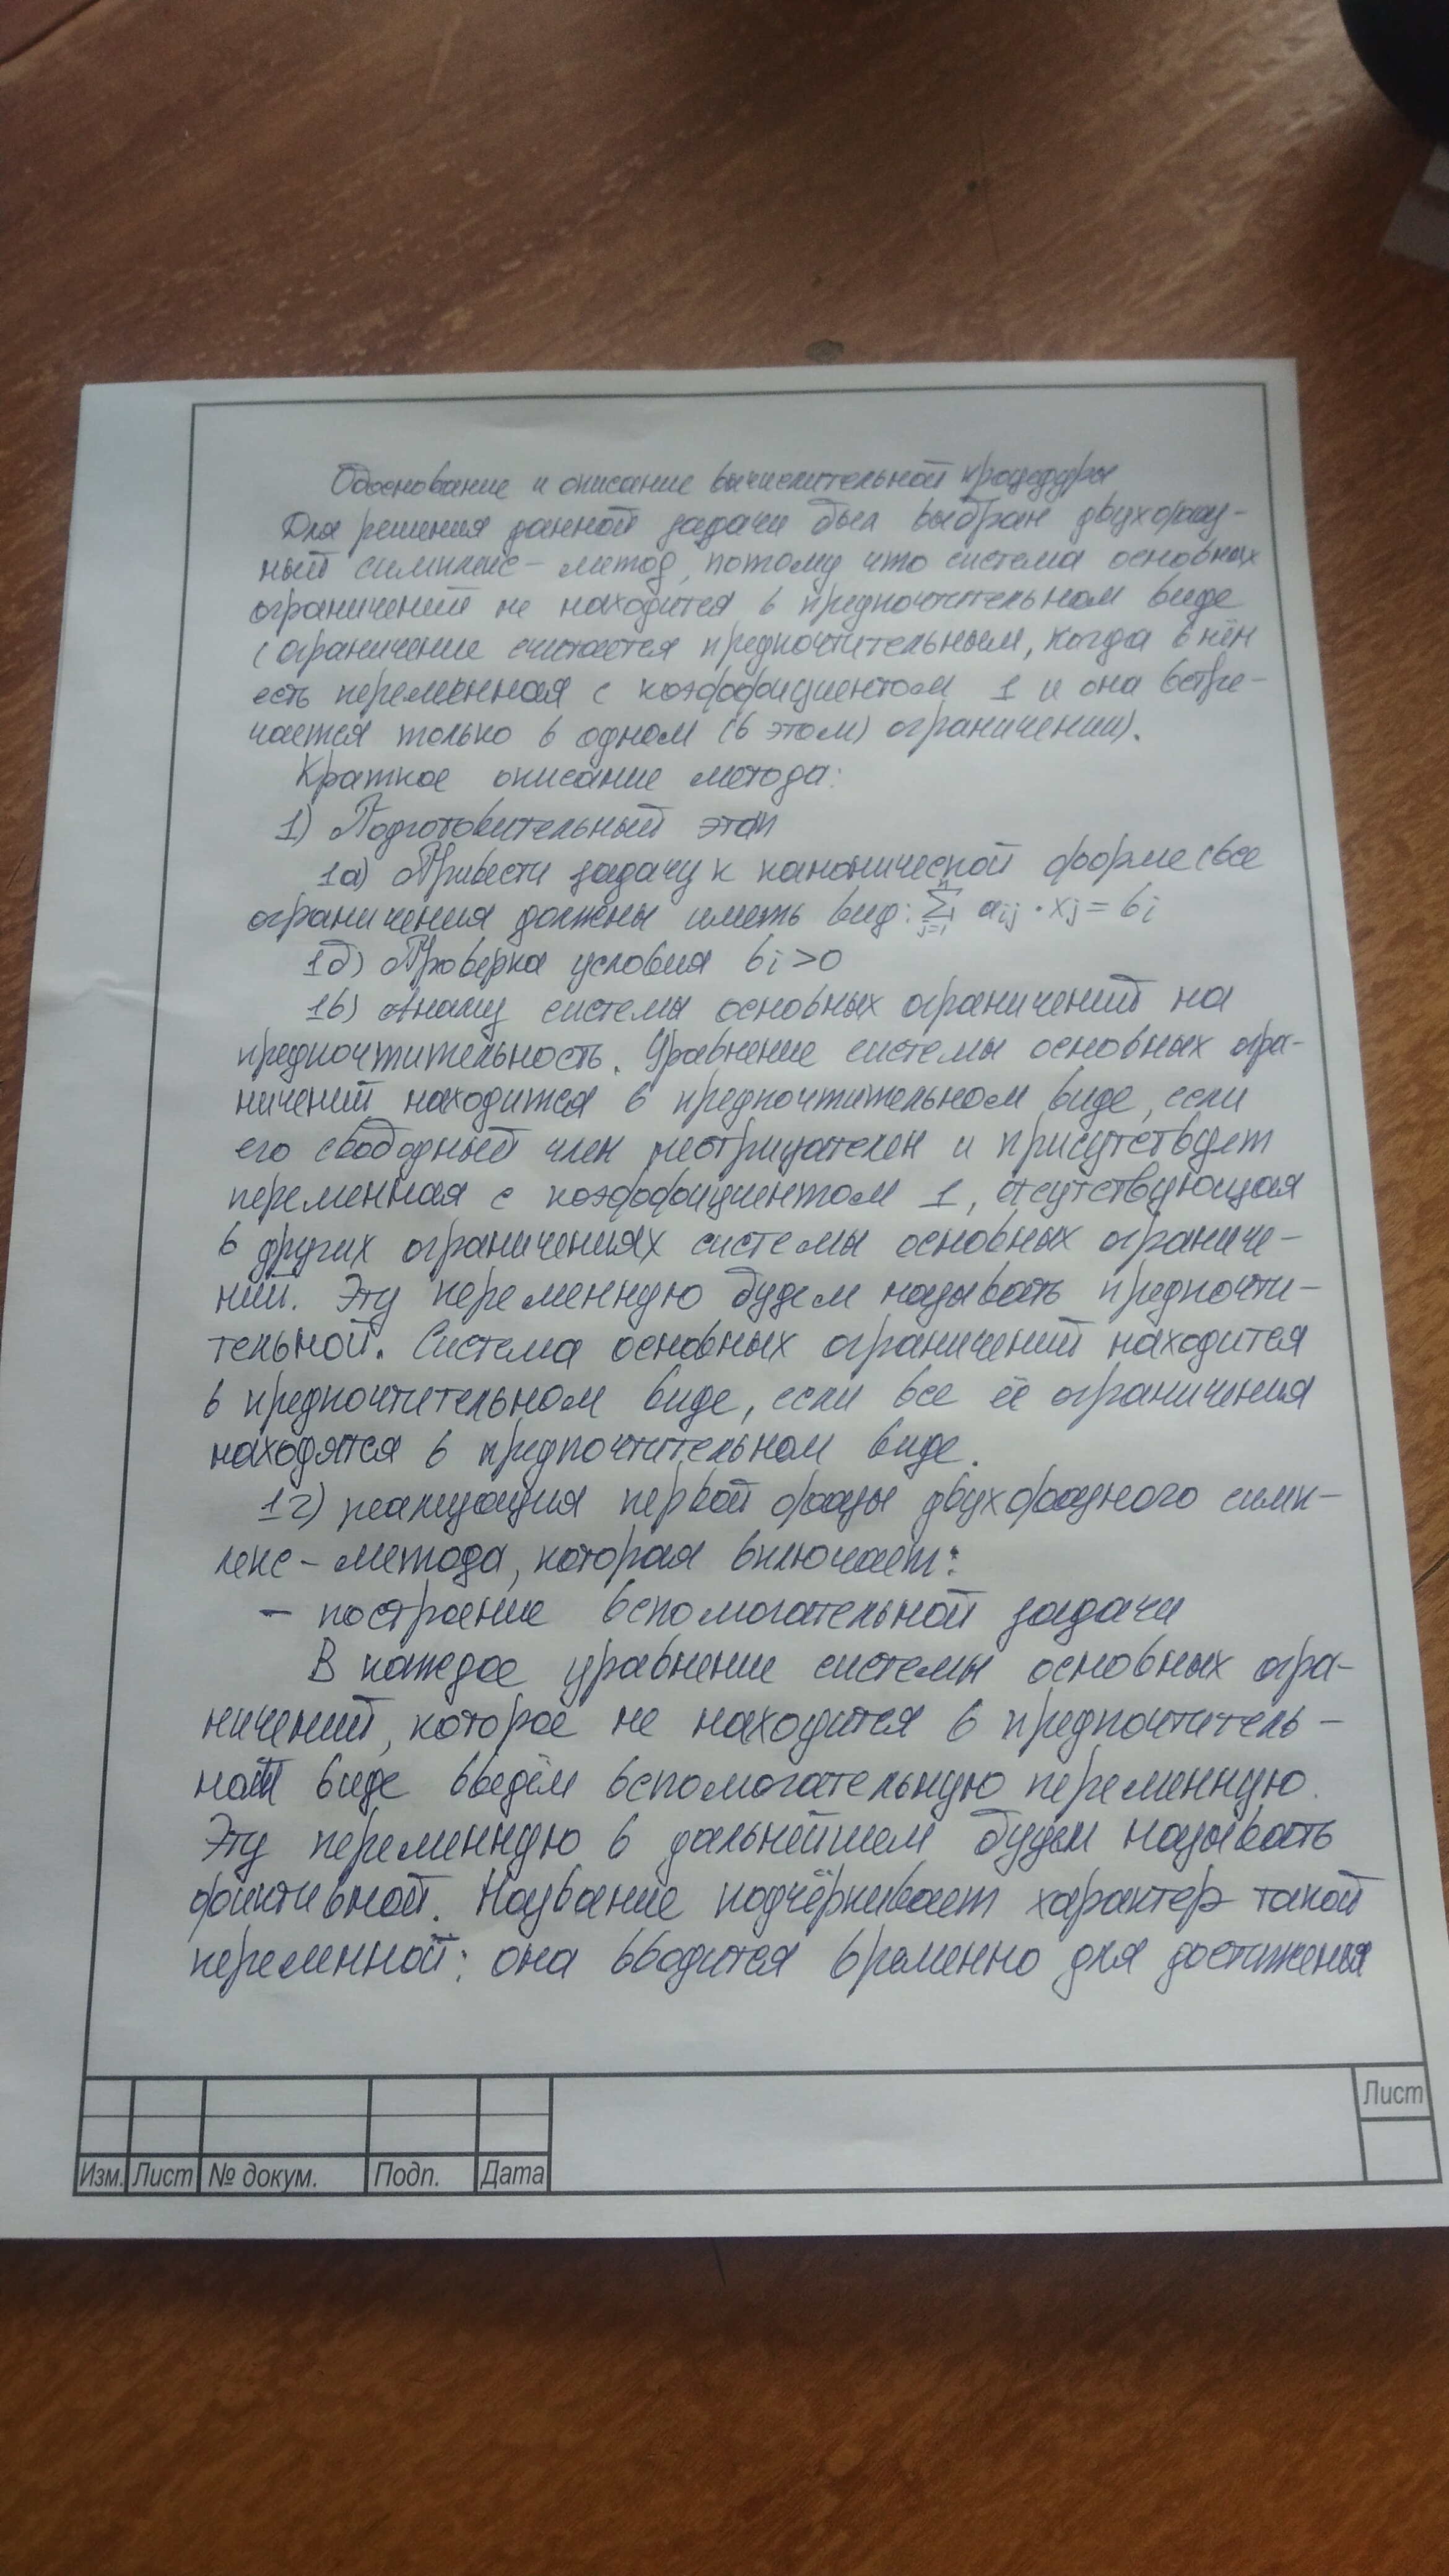 Обоснование и описание вычислительной процедуры
Для решения данной задачи был выбран двухфаз-
ный симплекс-метод, потому что система основных
ограничений не находится в предпочтительном виде
(ограничение считается предпочтительным, когда в нём
есть переменная с коэффициентом 1 и она встре-
чается только в одном (в этом) ограничении).
Краткое описание метода:
1) Подготовительный этап
1а) Привести задачу к канонической форме (все
ограничения должны иметь вид: ∑ⁿⱼ₌₁ aij · xj = bi
1б) Проверка условия bi > 0
1в) Анализ системы основных ограничений на
предпочтительность. Уравнение системы основных огра-
ничений находится в предпочтительном виде, если
его свободный член неотрицателен и присутствует
переменная с коэффициентом 1, отсутствующая
в других ограничениях системы основных ограниче-
ний. Эту переменную будем называть предпочти-
тельной. Система основных ограничений находится
в предпочтительном виде, если все её ограничения
находятся в предпочтительном виде.
1г) реализация первой фазы двухфазного симп-
лекс-метода, которая включает:
- построение вспомогательной задачи
В каждое уравнение системы основных огра-
ничений, которое не находится в предпочтитель-
ном виде введём вспомогательную переменную.
Эту переменную в дальнейшем будем называть
фиктивной. Название подчёркивает характер такой
переменной: она вводится временно для достиженья
Лист
Изм. Лист № докум. Подп. Дата